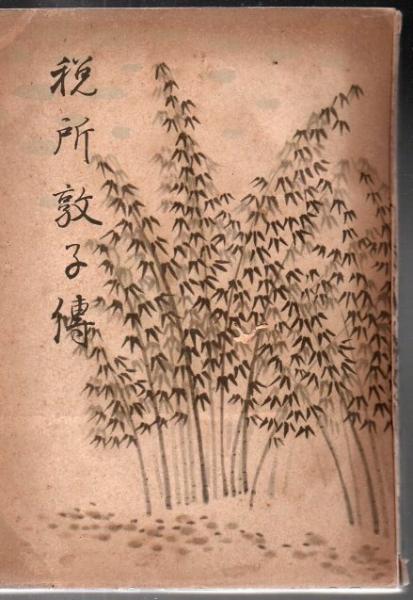 税所敦子傳